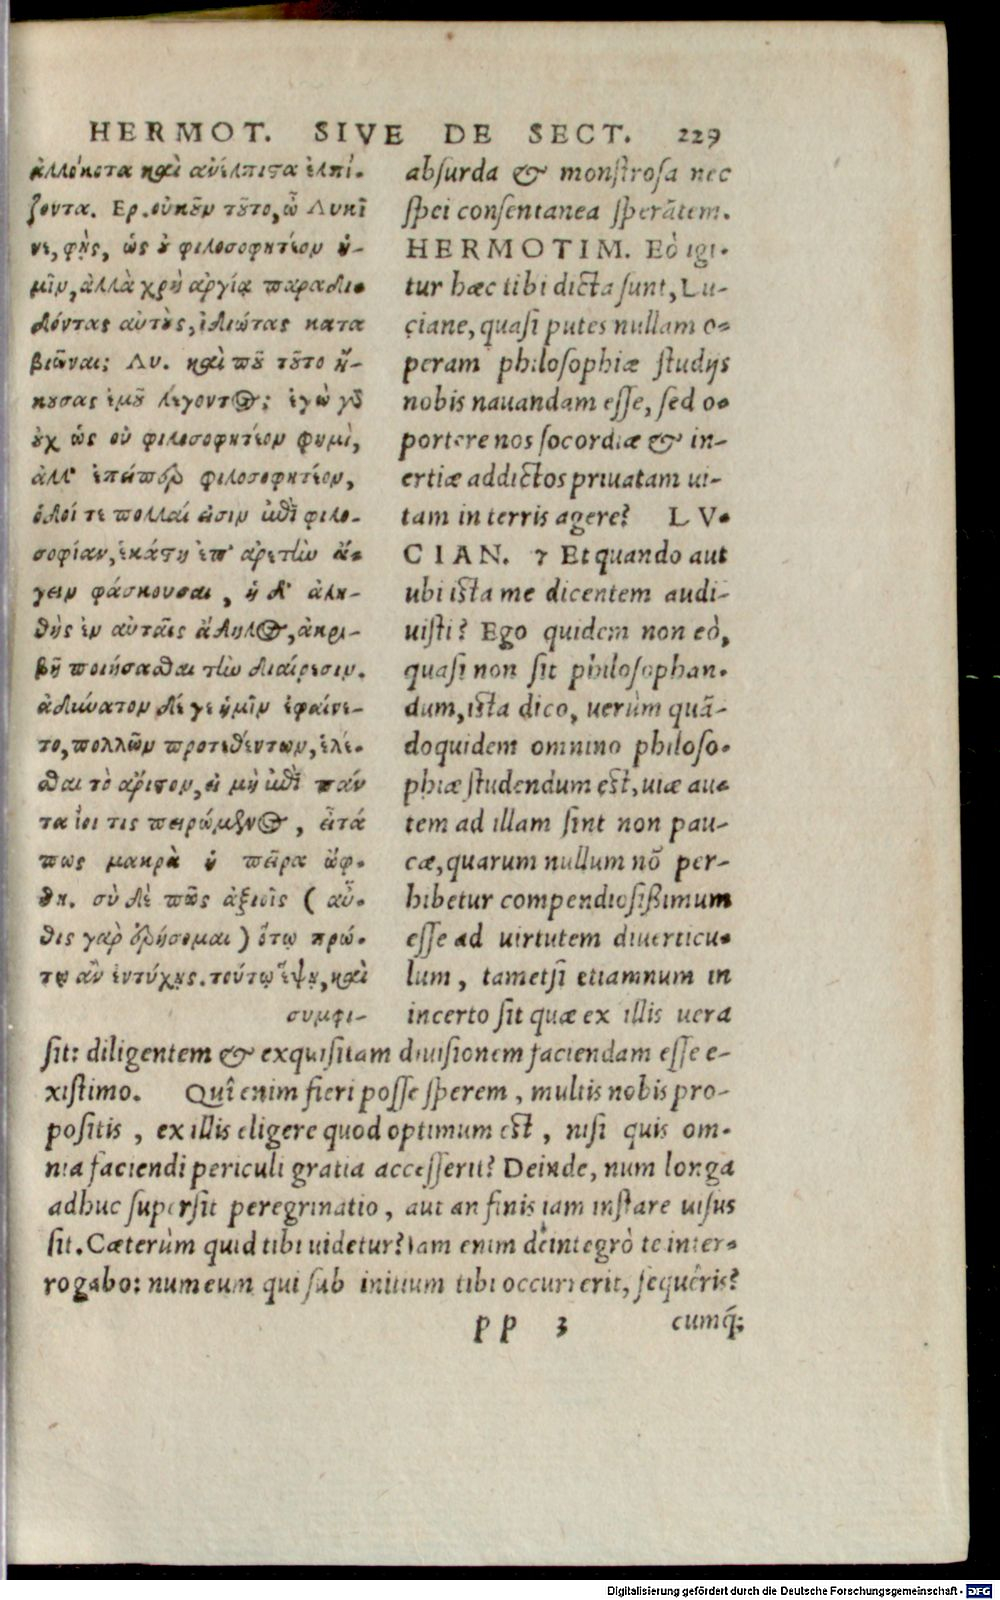 HERMOT. SIVE DE SECT. 229
ἀλλόκοτα καὶ ἀνέλπιστα ἐλπί-
ζοντα. Ερ. οὐκοῦν τοῦτο, ὦ Λυκῖ
νε, φῂς, ὡς οὐ φιλοσοφητέον ἡ-
μῖν, ἀλλὰ χρὴ ἀργίᾳ παραδι-
δόντας αὐτοὺς, ἰδιώτας κατα
βιῶναι; Λυ. καὶ ποῦ τοῦτο ἤ-
κουσας ἐμοῦ λέγοντος; ἐγὼ γὰρ
οὐχ ὡς οὐ φιλοσοφητέον φημὶ,
ἀλλ' ἐπείπερ φιλοσοφητέον,
ὁδοί τε πολλαί εἰσιν ἐπὶ φιλο-
σοφίαν, ἑκάστη ἐπ' ἀρετὴν ἄ-
γειν φάσκουσαι, ἡ δ' ἀλη-
θὴς ἐν αὐταῖς ἄδηλος, ἀκρι-
βῆ ποιήσασθαι τὴν διαίρεσιν.
ἀδύνατον δέ γε ἡμῖν ἐφαίνε-
το, πολλῶν προτεθέντων, ἑλέ-
σθαι τὸ ἄριστον, εἰ μὴ ἐπὶ πάν
τα ἴοι τις πειρώμενος, εἶτά
πως μακρὰ ἡ πεῖρα ὤφ-
θη. σὺ δὲ πῶς ἀξιοῖς ( αὖ-
θις γὰρ ἐρήσομαι ) ὅτῳ πρώ-
τῳ ἂν ἐντύχῃς. τούτῳ ἕψῃ, καὶ
συμφι-
absurda & monstrosa nec
spei consentanea sperãtem.
HERMOTIM. Eò igi-
tur hæc tibi dicta sunt, Lu-
ciane, quasi putes nullam o-
peram philosophiæ studijs
nobis nauandam esse, sed o-
portere nos socordiæ & in-
ertiæ addictos priuatam ui-
tam in terris agere? LV-
CIAN. 7 Et quando aut
ubi ista me dicentem audi-
uisti? Ego quidem non eò,
quasi non sit philosophan-
dum, ista dico, uerùm quã-
doquidem omnino philoso-
phiæ studendum est, uiæ au-
tem ad illam sint non pau-
cæ, quarum nullum nõ per-
hibetur compendiosißimum
esse ad uirtutem diuerticu-
lum, tametsi etiamnum in
incerto sit quæ ex illis uera
sit: diligentem & exquisitam diuisionem faciendam esse e-
xistimo. Quî enim fieri posse sperem, multis nobis pro-
positis, ex illis eligere quod optimum est, nisi quis om-
nia faciendi periculi gratia accesserit? Deinde, num longa
adhuc supersit peregrinatio, aut an finis iam instare uisus
sit. Cæterùm quid tibi uidetur? Iam enim deintegrò te inter-
rogabo: num eum qui sub initium tibi occurrerit, sequêris?
pp 3 cumq́;
Digitalisierung gefördert durch die Deutsche Forschungsgemeinschaft - DFG